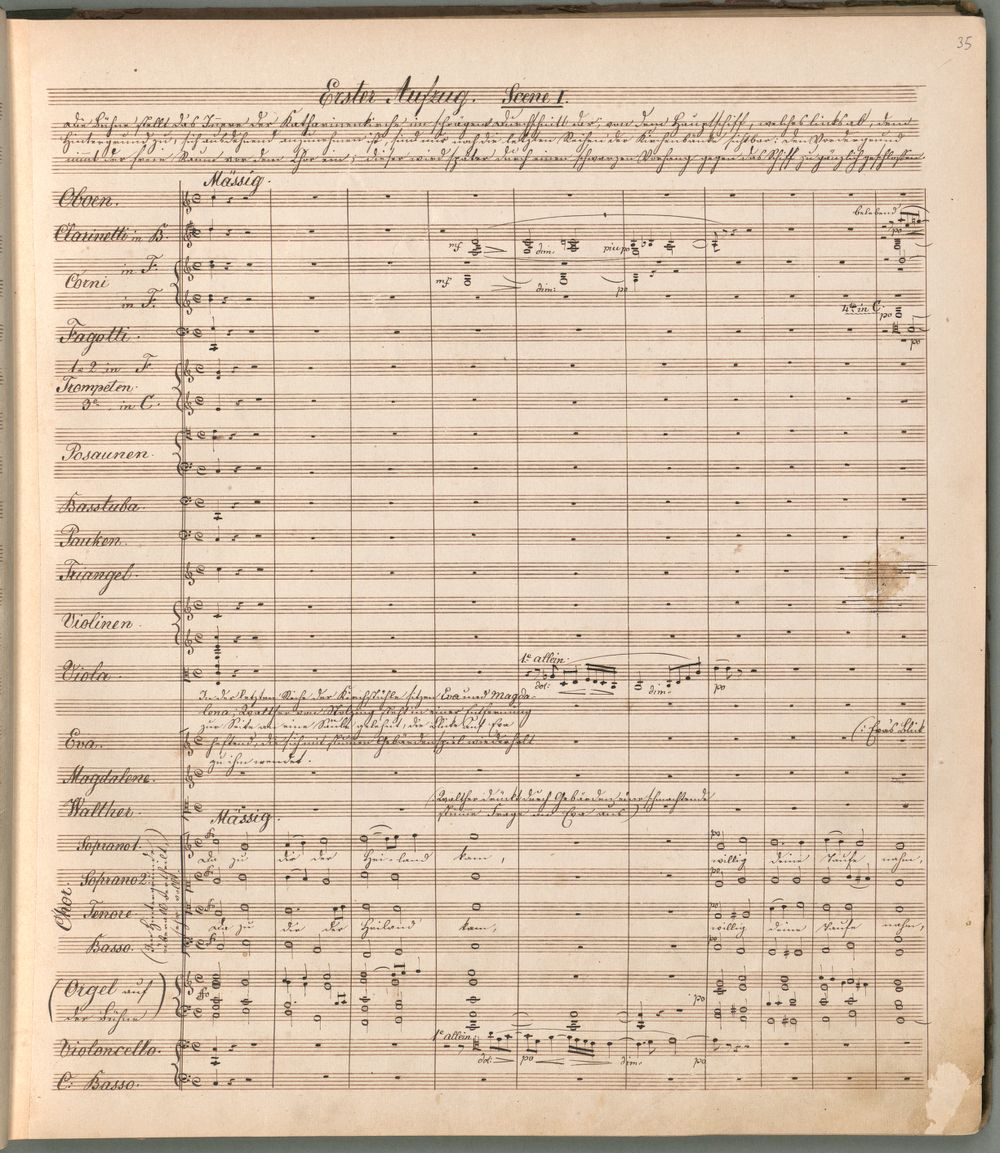 35
Erster Aufzug. Scene I.
Die Bühne stellt das Innere der Katharinenkirche in schrägem Durchschnitt dar; von dem Hauptschiff, welches links ab, dem
Hintergrunde zu, sich ausdehnend anzunehmen ist, sind nur noch die letzten Reihen der Kirchenbänke sichtbar: den Vordergrund
nimmt der freie Raum vor dem Chor ein; dieser wird später durch einen schwarzen Vorhang gegen das Schiff zu gänzlich geschlossen.
Mässig.
Oboen.
belebend
Clarinetti in B.
po
mf dim: più po
Corni in F.
mf dim: po
in F.
4te in C. po
Fagotti.
po
1. 2 in F
Trompeten.
3e in C.
Posaunen.
Basstuba.
Pauken.
Triangel.
Violinen.
1e allein.
Viola.
dol: dim: po
In der letzten Reihe der Kirchstühle sitzen Eva und Magda-
lene; Walther von Stolzing steht in einer Entfernung
zur Seite an eine Säule gelehnt, die Blicke auf Eva
Eva. heftend, die sich mit stummem Gebärdenspiel wiederholt
(: Eva's Blick
zu ihm wendet.
Magdalene.
(Walther drückt durch Gebärden eine schmachtende
Walther. stumme Frage an Eva aus)
Mässig.
Chor
Soprano 1.
Da zu dir der Hei-land kam, willig deine Taufe nahm,
Soprano 2.
Tenore.
Da zu dir der Heiland kam, willig deine Taufe nahm,
Basso.
(Orgel auf der Bühne)
po
1e allein:
Violoncello.
dol: po dim: po
C: Basso.